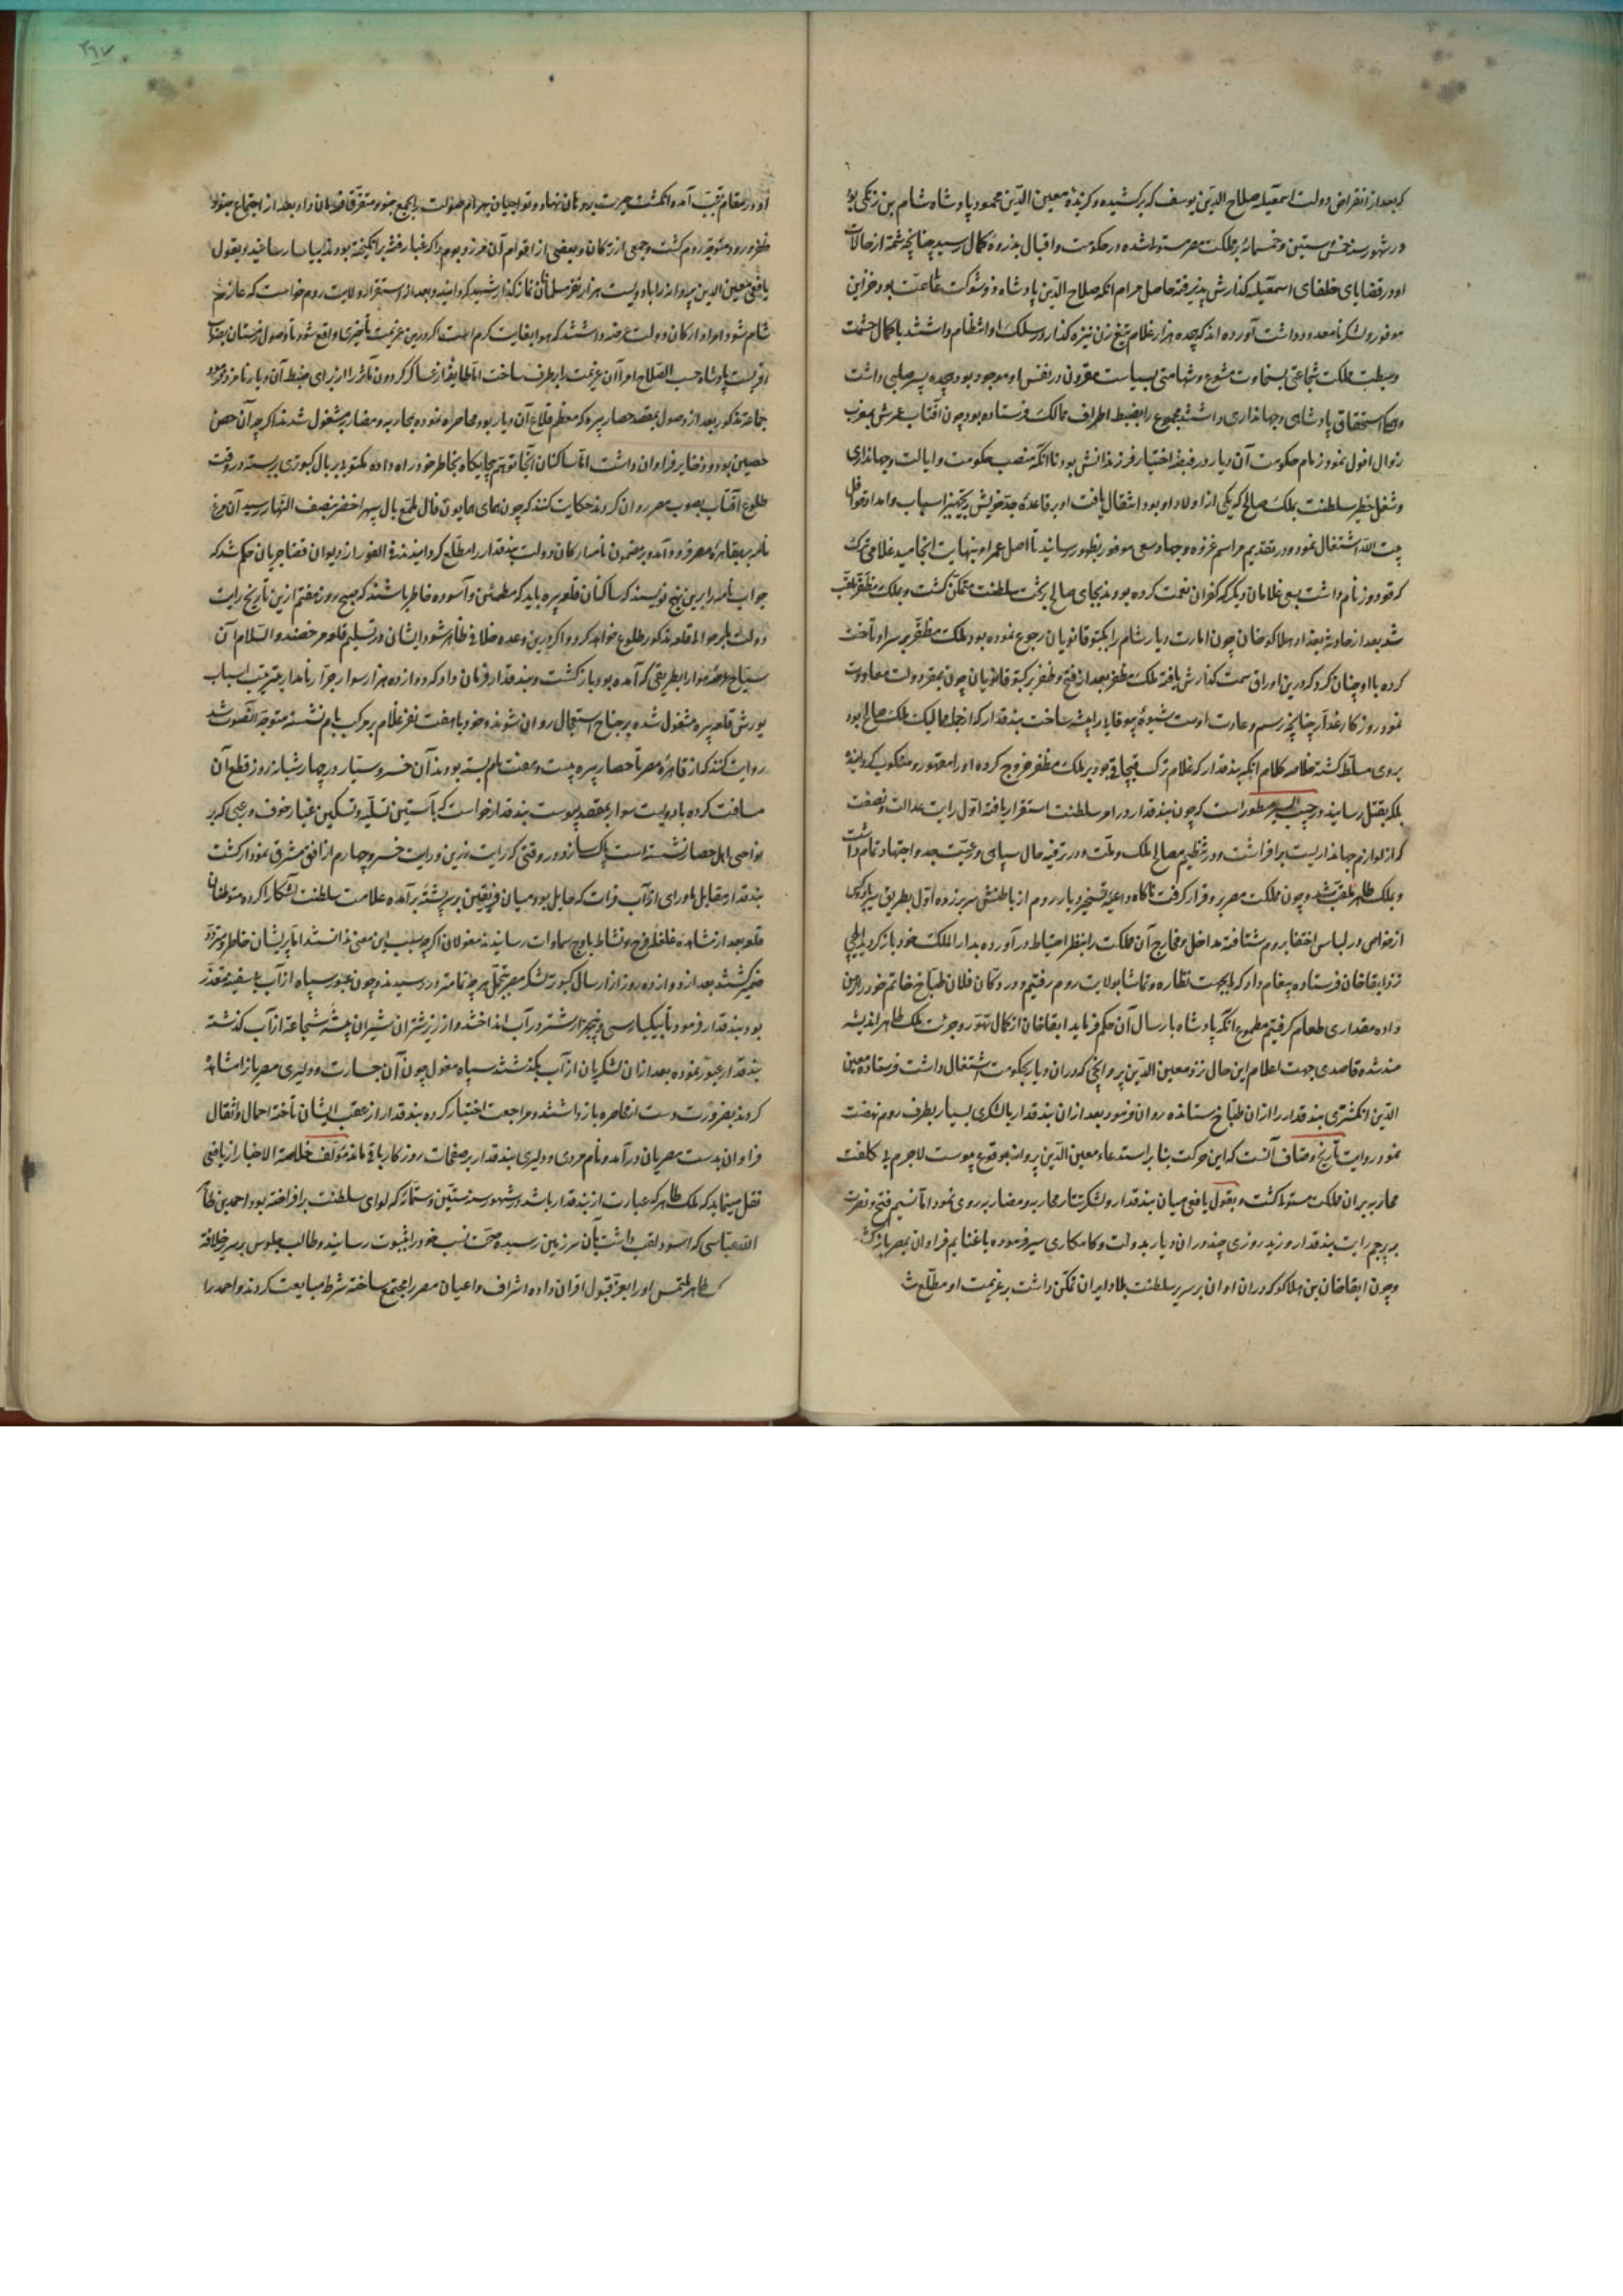 که بعد از انقراض دولت اسمعیلیه صلاح الدین یوسف که برکشیده و کزیدهٔ معین الدین محمود پادشاه شام بن زنکی بود
در شهور سنه خمس و ستین و خمسمائه بر مملکت مصر مستولی شده در حکومت و اقبال بذروهٔ کمال رسید چنانچه شمهٔ از حالات
او در قضایای خلفای اسمعیلیه کذارش پذیرفته حاصل مرام انکه صلاح الدین پادشاه ذو شوکت عالی همت بود و خزاین
موفور و لشکر نامعدود داشت آورده اند که هجده هزار غلام تیغ زن نیزه کذار در سلک او انتظام داشتند با کمال حشمت
و بسطت ملکت شجاعتی بسخاوت مشفوع و شهامتی بسیاست مقرون در نفس او موجود بود و هجده پسر صلبی داشت
و همه استحقاق پادشاهی و جهانداری داشتند مجموع را بضبط اطراف ممالک فرستاده بود چون افتاب عمرش بمغرب
زوال افول نمود زمام حکومت آن دیار در قبضهٔ اختیار فرزندانش بود تا انکه منصب حکومت و ایالت و جهانداری
و شغل خطیر سلطنت بملک صالح که یکی از اولاد او بود انتقال یافت او بر قاعدهٔ جد خویش بتجهیز اسباب و امداد قوافل
بیت الله اشتغال نمود و در تقدیم مراسم غزوه و جهاد سعی موفور بظهور رسانید تا اصل عمر او بنهایت انجامید غلامی ترک
که قودوز نام داشت بسعی غلامان دیکر که کفران نعمت کرده بودند بجای صالح بر تخت سلطنت متمکن کشت و بملک مظفر ملقب
شد بعد از حادثه بغداد هلاکو خان چون امارت دیار شام را بکیتوقا نویان رجوع نموده بود ملک مظفر بر سر او تاخت
کرده با او چنان کرد که درین اوراق سمت کذارش یافته ملک مظفر بعد از فتح و ظفر بر کیتوقا نویان چون بمقر دولت معاودت
نمود روزکار غدار چنانچه رسم و عادت اوست شیوهٔ بیوفایی را پیشه ساخت بندقدار که از جمله ممالیک ملک صالح بود
بروی مسلط کشته خلاصه کلام انکه بندقدار که غلام ترک قبچاقی بود بر ملک مظفر خروج کرده او را مقهور و منکوب کردانید
بلکه بقتل رسانید و در حبیب السیر مسطور است که چون بندقدار در امر سلطنت استقرار یافته اول رایت عدالت و نصفت
که از لوازم جهانداریست برافراشت و در تنظیم مصالح ملک و ملت و در ترفیه حال سپاهی و رعیت جد و اجتهاد تمام داشت
و بملک طاهر ملقب شد و چون مملکت مصر برو قرار کرفت ناکاه داعیهٔ تسخیر دیار روم از باطنش سر بر زده اول بطریق سیر با کسی
از خواص در لباس اختفا بروم شتافته مداخل و مخارج آن مملکت را بنظر احتیاط درآورده بدار الملک خود باز کردید ایلچی
نزد ابقاخان فرستاده پیغام داد که ما بجهت نظاره و تماشا بولایت روم رفتیم و در دکان فلان طباخ خاتم خود را رهن
داده مقداری طعام کرفتیم مطموع انکه پادشاه بارسال آن حکم فرماید ابقاخان از کمال تهور و جرئت ملک طاهر اندیشه
مند شده قاصدی جهت اعلام این حال نزد معین الدین پروانچی که در ان دیار بحکومت اشتغال داشت فرستاده معین
الدین انکشتری بندقدار را از ان طباخ ستانده روان فرمود بعد از ان بندقدار با لشکری بسیار بطرف روم نهضت
نمود روایت تاریخ وصاف آنست که این حرکت بنا بر استدعاء معین الدین پروانه بوقوع پیوست لاجرم بی کلفت
محاربه بر ان مملکت مستولی کشت و بقول یافعی میان بندقدار و لشکر تتار محاربه و مضاربه روی نمود اما نسیم فتح و نصرت
بر پرچم رایت بندقدار وزید روزی چند در ان دیار بدولت و کامکاری سیر فرموده با غنایم فراوان بمصر بازکشت
و چون ابقاخان بن هلاکو که در ان اوان بر سریر سلطنت بلاد ایران تمکن داشت بر غزیمت او مطلع شد
او در مقام تعجب آمده انکشت حیرت بر دهان نهاد و تواجیان بهرام صولت را بجمع جنود متفرقه فرمان داد و بعد از اجتماع جنود
ظفر ورود متوجه روم کشت و جمعی از ترکمان و بعضی از اقوام آن مرز و بوم را که غبار فتنه برانکیخته بودند بیاسا رسانید و بقول
یافعی معین الدین پروانه را با دویست هزار نفر مسلمان نماز کذار شهید کردانید و بعد از استقرار ولایت روم خواست که عازم
شام شود امرا و ارکان دولت عرضه داشتند که هوا بغایت کرم است اکر درین عزیمت تاخیری واقع شود تا وصول زمستان بصواب
اقربست پادشاه حسب الصلاح امرا آن عزیمت را برطرف ساخت اما طایفهٔ از عساکر کردون مآثر را از برای ضبط آن دیار نامزد فرمود
جماعة مذکور بعد از وصول بمقصد حصار بیره که معظم قلاع آن دیار بود محاصره نموده بمحاربه و مضاربه مشغول شدند اکرچه آن حصن
حصین بود و ذخایر فراوان داشت اما ساکنان آنجا توهم بیجایکاه بخاطر خود راه داده مکتوبی بر بال کبوتری بسته در وقت
طلوع آفتاب بصوب مصر روان کردند حکایت کنند که چون همای همایون فال ملمع بال سپهر اخضر بنصف النهار رسید آن مرغ
نامه بر بقاهرهٔ مصر فرود آمده بمضمون نامه ارکان دولت بندقدار را مطلع کردانیدند فی الفور از دیوان قضا جریان حکم شد که
جواب نامه را برین نهج نویسند که ساکنان قلعه بیره باید که مطمئن و آسوده خاطر باشند که صبح روز هفتم ازین تاریخ رایت
دولت ما بر حوالی قلعه مذکور طلوع خواهد کرد و اکر درین وعده خلافی ظاهر شود ایشان در تسلیم قلعه مرخصند و السلام آن
سیاح هوا بطریقی که آمده بود بازکشت و بندقدار فرمان داد که دوازده هزار سوار جرار نامدار بترتیب اسباب
یورش قلعه بیره مشغول شده بر جناح استعجال روان شوند و خود با هفت نفر غلام بر مرکب یام نشسته متوجه آنصوب شد
روایت کنند که از قاهرهٔ مصر تا حصار بیره بیست و هفت یام بسته بودند آن خسرو سیار در چهار شبانه روز قطع آن
مسافت کرده با دویست سوار بمقصد پیوست بندقدار خواست که بآستین تسلیه و تسکین غبار خوف و رعبی که بر
نواصی اهل حصار نشسته است پاک سازد در وقتی که رایت زرین درایت خسرو چهارم از افق مشرق نمودار کشت
بندقدار مقابل ماورای آب فرات که حایل بود میان فریقین بر سر پشتهٔ برآمده علامت سلطنت آشکارا کرده متوطنان
قلعه بعد از مشاهده غلغلهٔ فرح و نشاط باوج سماوات رسانیدند مغولان اکرچه سبب این معنی ندانستند اما پریشان خاطر و متردد
ضمیر کشتند بعد از دوازده روز از ارسال کبوتر لشکر مصر بتجمل هرچه تمامتر در رسیدند و چون عبور سپاه از آب بی سفینه متعذر
بود بندقدار فرمود تا بیکبار سی و پنج هزار شتر در آب انداختند و از زیر شتران شیران بیشه شجاعة از آب کذشته
بندقدار عبور نموده بعد از ان لشکریان از آب بکذشتند سپاه مغول چون آن جسارت و دلیری مصریان مشاهده
کردند بضرورت دست از محاصره بازداشتند و مراجعت اختیار کرده بندقدار از عقب ایشان تاخته احمال و اثقال
فراوان بدست مصریان درآمد و نام مردی و دلیری بندقدار بر صفحات روزکار باقی ماند مؤلف خلاصة الاخبار از یافعی
نقل مینماید که ملک طاهر که عبارت از بندقدار باشد در شهور سنه ستین و ستمائه که لوای سلطنت برافراخته بود احمد بن ظاهر
بالله عباسی که اسود لقب داشت بآن سرزمین رسیده صحت نسب خود را بثبوت رسانید و طالب جلوس بر سریر خلافة
ملک طاهر ملتمس او را بعز قبول اقتران داده اشراف و اعیان مصر را مجتمع ساخته شرط مبایعت کردند و احمد را